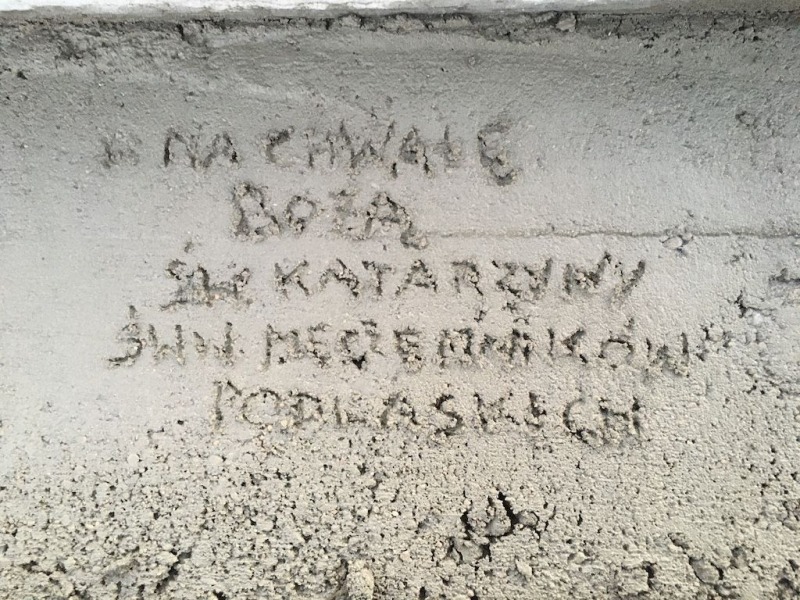 NA CHWAŁĘ
BOŻĄ
ŚW KATARZYNY
ŚWW MĘCZENNIKÓW
PODLASKICH